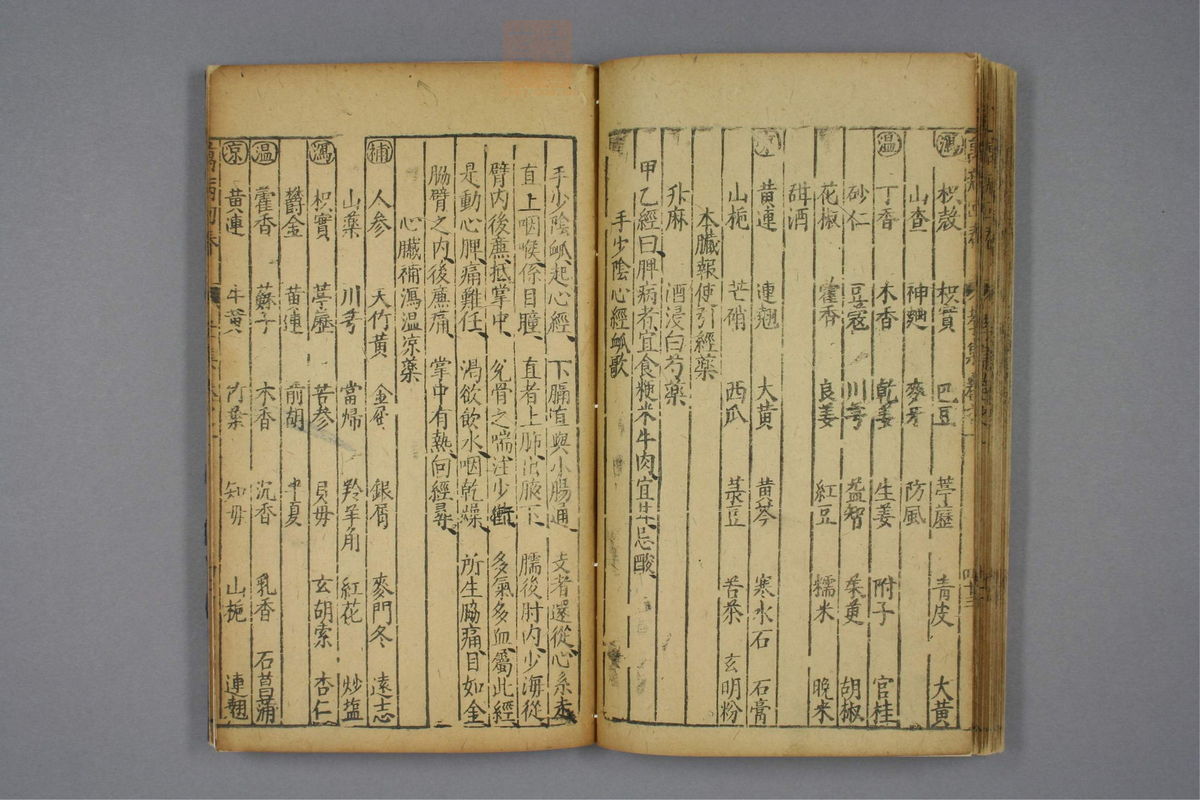 瀉 枳殼 枳實 巴豆 葶藶 青皮 大黃
山查 神麯 麥芽 防風
溫 丁香 木香 乾姜 生姜 附子 官桂
砂仁 豆蔻 川芎 益智 茱萸 胡椒
花椒 藿香 良姜 紅豆 糯米 晚米
甜酒
黃連 連翹 大黃 黃芩 寒水石 石膏
山梔 芒硝 西瓜 菉豆 苦茶 玄明粉
本臟報使引經藥
升麻 酒浸白芍藥
甲乙經曰脾病者宜食粳米牛肉宜甘忌酸
手少陰心經脉歌
手少陰脉起心經 下膈直與小腸通 支者還從心系走
直上咽喉係目瞳 直者上肺出腋下 臑後肘內少海從
臂內後廉抵掌中 兌骨之端注少衝 多氣多血屬此經
是動心脾痛難任 渴欲飲水咽乾燥 所生脇痛目如金
脇臂之內後廉痛 掌中有熱向經尋
心臟補瀉溫凉藥
補 人參 天竹黃 金屑 銀屑 麥門冬 遠志
山藥 川芎 當歸 羚羊角 紅花 炒塩
瀉 枳實 葶藶 苦參 貝母 玄胡索 杏仁
欝金 黃連 前胡 半夏
溫 藿香 蘇子 木香 沉香 乳香 石菖蒲
凉 黃連 牛黃 竹葉 知母 山梔 連翹
萬病回春